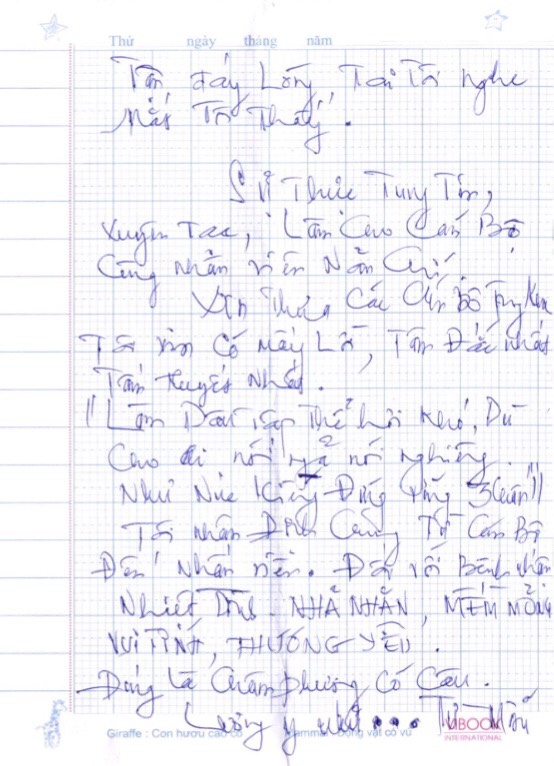 Thứ ngày tháng năm
Tận đáy Lòng, Tai Tôi nghe
Mắt Tôi Thấy.
Sự Thức Tung Tin,
Xuyên Tạc, Làm Cho Cán Bộ
Công nhân viên Nản Chí
Xin Thưa Các Cán Bộ
Tôi Có Mấy Lời, Tâm Đắc nhất
Tâm Huyết Nhất.
"Làm Dâu Thể hơi Khó, Dù
Cho đi nói ngả nói nghiêng
Như Kiềng Đứng Vững 3 Chân"
Tôi nhận Định Cũng Từ Cán Bộ
Đến Nhân viên. Đối với Bệnh nhân
Nhiệt Tình. NHÃ NHẶN, MỀM MỎNG
VUI TÍNH, THƯƠNG YÊU.
Đúng là Châm phương Có Câu.
Lương y như... Từ Mẫu
Giraffe : Con hươu cao cổ Mammal : Động vật có vú
MBOOK
INTERNATIONAL